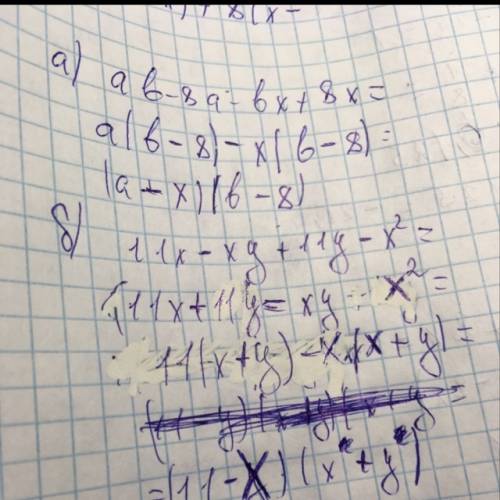 + 8(x-
а) ab-8a-bx+8x=
a(b-8)-x(b-8)=
(a-x)(b-8)
б)
11x-xy+11y-x²=
(11x+11y=xy-x²=
11(x+y)-x(x+y)=
=(11-x)(x+y)